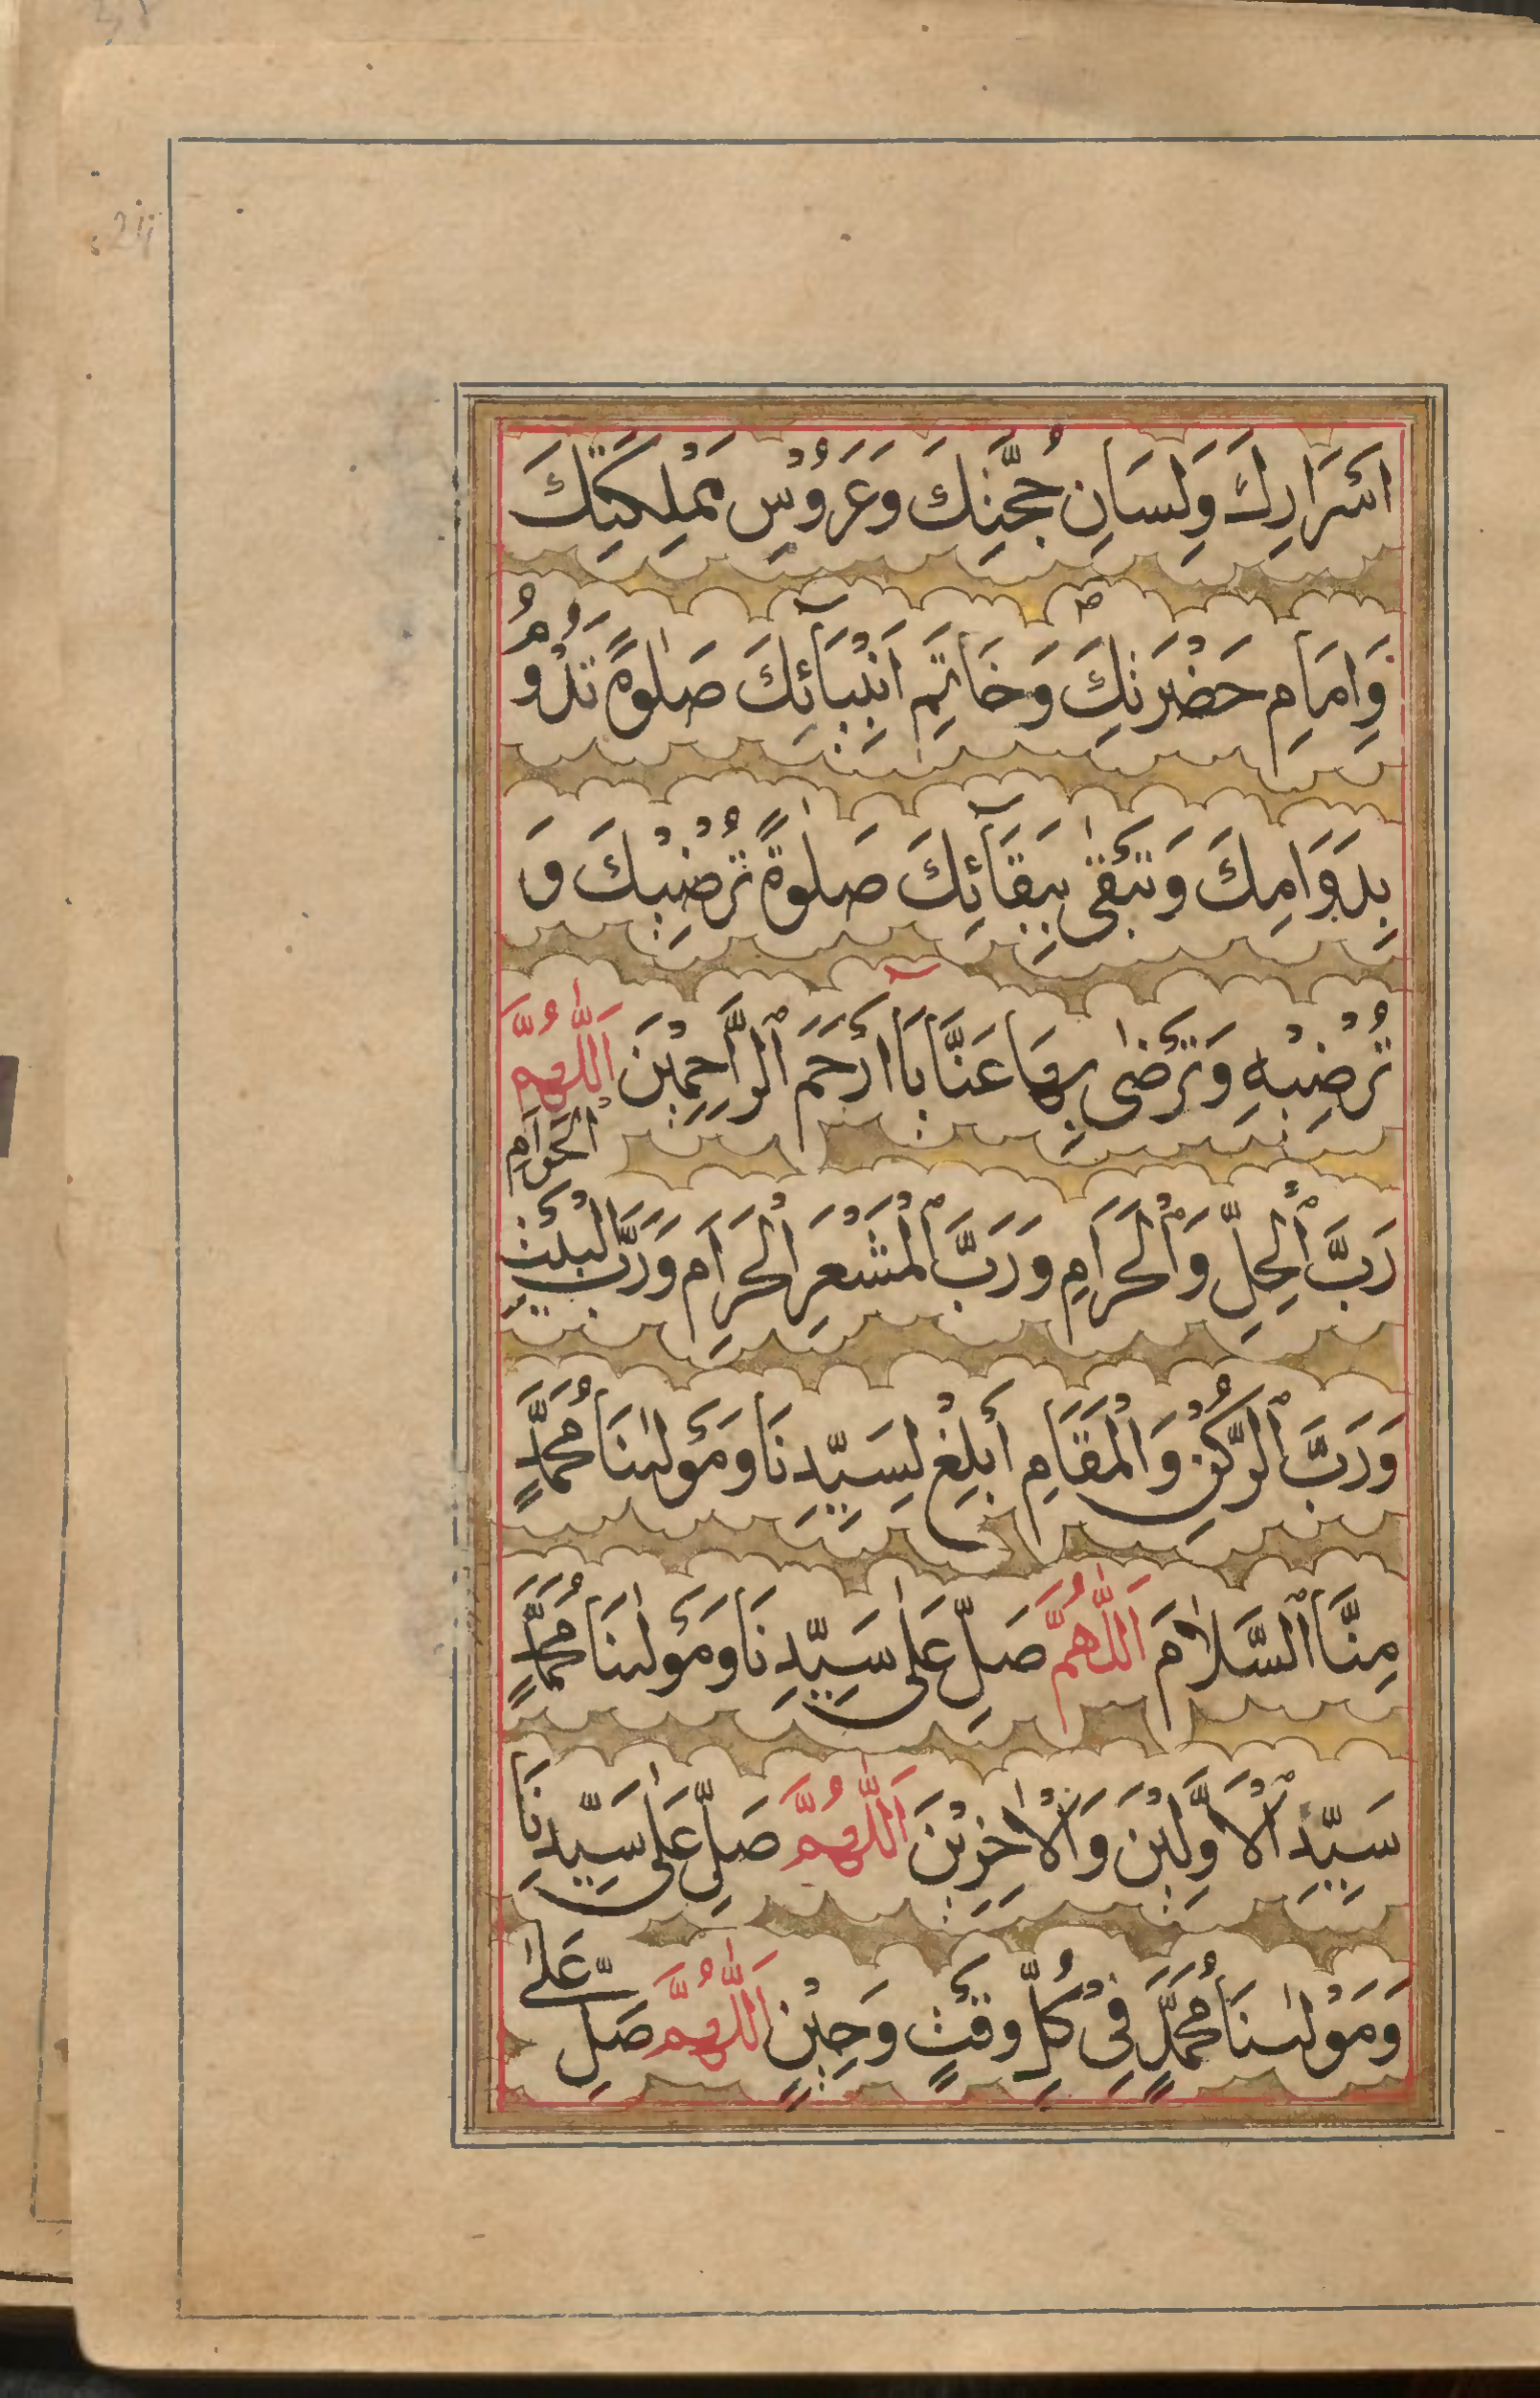 اَسْرَارِكَ وَلِسَانِ حُجَّتِكَ وَعَرُوْسِ مَمْلِكَتِكَ
وَاِمَامِ حَضْرَتِكَ وَخَاتِمِ اَنْبِيَآئِكَ صَلٰوةً تَدُوْمُ
بِدَوَامِكَ وَتَبْقٰى بِبَقَآئِكَ صَلٰوةً تُرْضِيْكَ وَ
تُرْضِيْهِ وَتَرْضٰى بِهَا عَنَّا يَآ اَرْحَمَ ٱلرَّاحِمِيْنَ اَللّٰهُمَّ
رَبَّ ٱلْحِلِّ وَٱلْحَرَامِ وَرَبَّ ٱلْمَشْعَرِ الْحَرَامِ وَرَبَّ الْبَيْتِ الْحَرَامِ
وَرَبَّ ٱلرُّكْنِ وَالْمَقَامِ أَبْلِغْ لِسَيِّدِنَا وَمَوْلٰىنَا مُحَمَّدٍ
مِنَّا ٱلسَّلَامَ اَللّٰهُمَّ صَلِّ عَلٰى سَيِّدِنَا وَمَوْلٰىنَا مُحَمَّدٍ
سَيِّدِ ٱلْاَوَّلِيْنَ وَالْاٰخِرِيْنَ اَللّٰهُمَّ صَلِّ عَلٰى سَيِّدِنَا
وَمَوْلٰىنَا مُحَمَّدٍ فِيْ كُلِّ وَقْتٍ وَحِيْنٍ اَللّٰهُمَّ صَلِّ عَلٰى